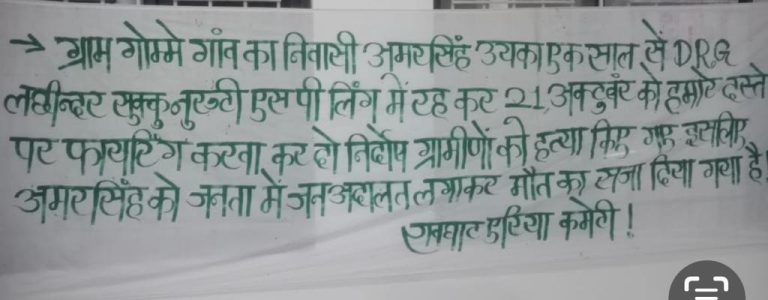 → ग्राम गोम्मे गांव का निवासी अमरसिंह उयका एक साल से DRG
लछीन्दर सुक्कु नुरूटी एस पी लिंग में रह कर 21, अक्टुबर को हमारे दस्ते
पर फायरिंग करवा कर दो निर्दोष ग्रामीणों की हत्या किए गए इसलिए
अमरसिंह को जनता में जन अदालत लगाकर मौत का सजा दिया गया है!
एरिया कमेटी!